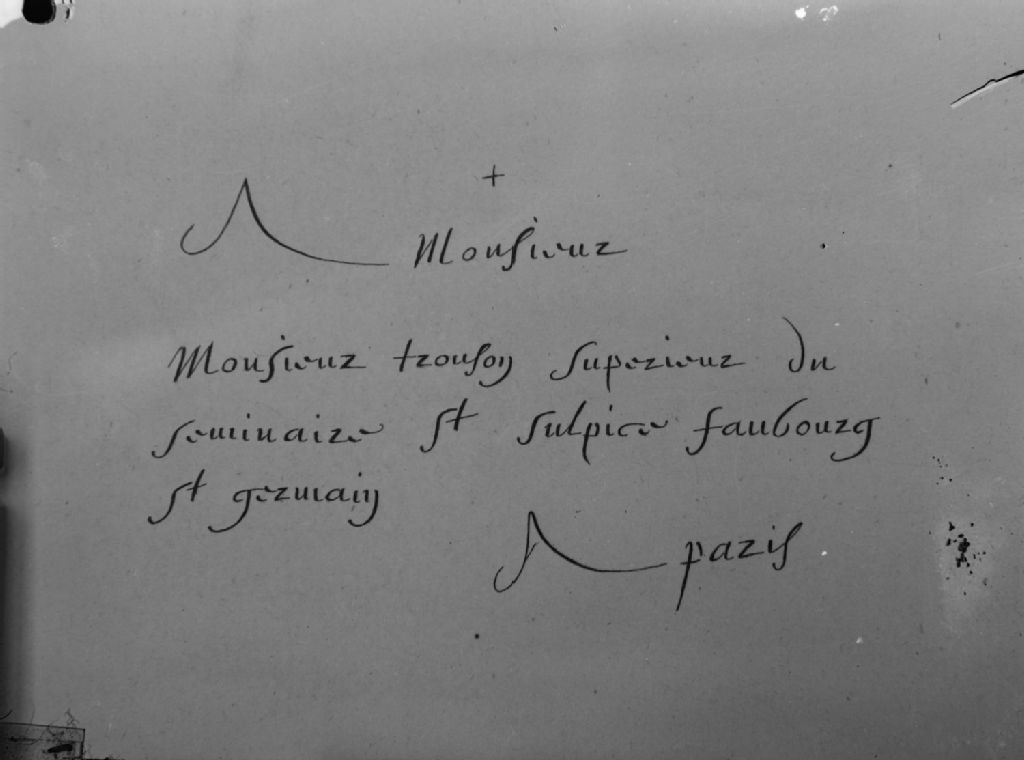 +
A Monsieur
Monsieur tronson superieur du
seminaire st sulpice faubourg
st germain
A paris